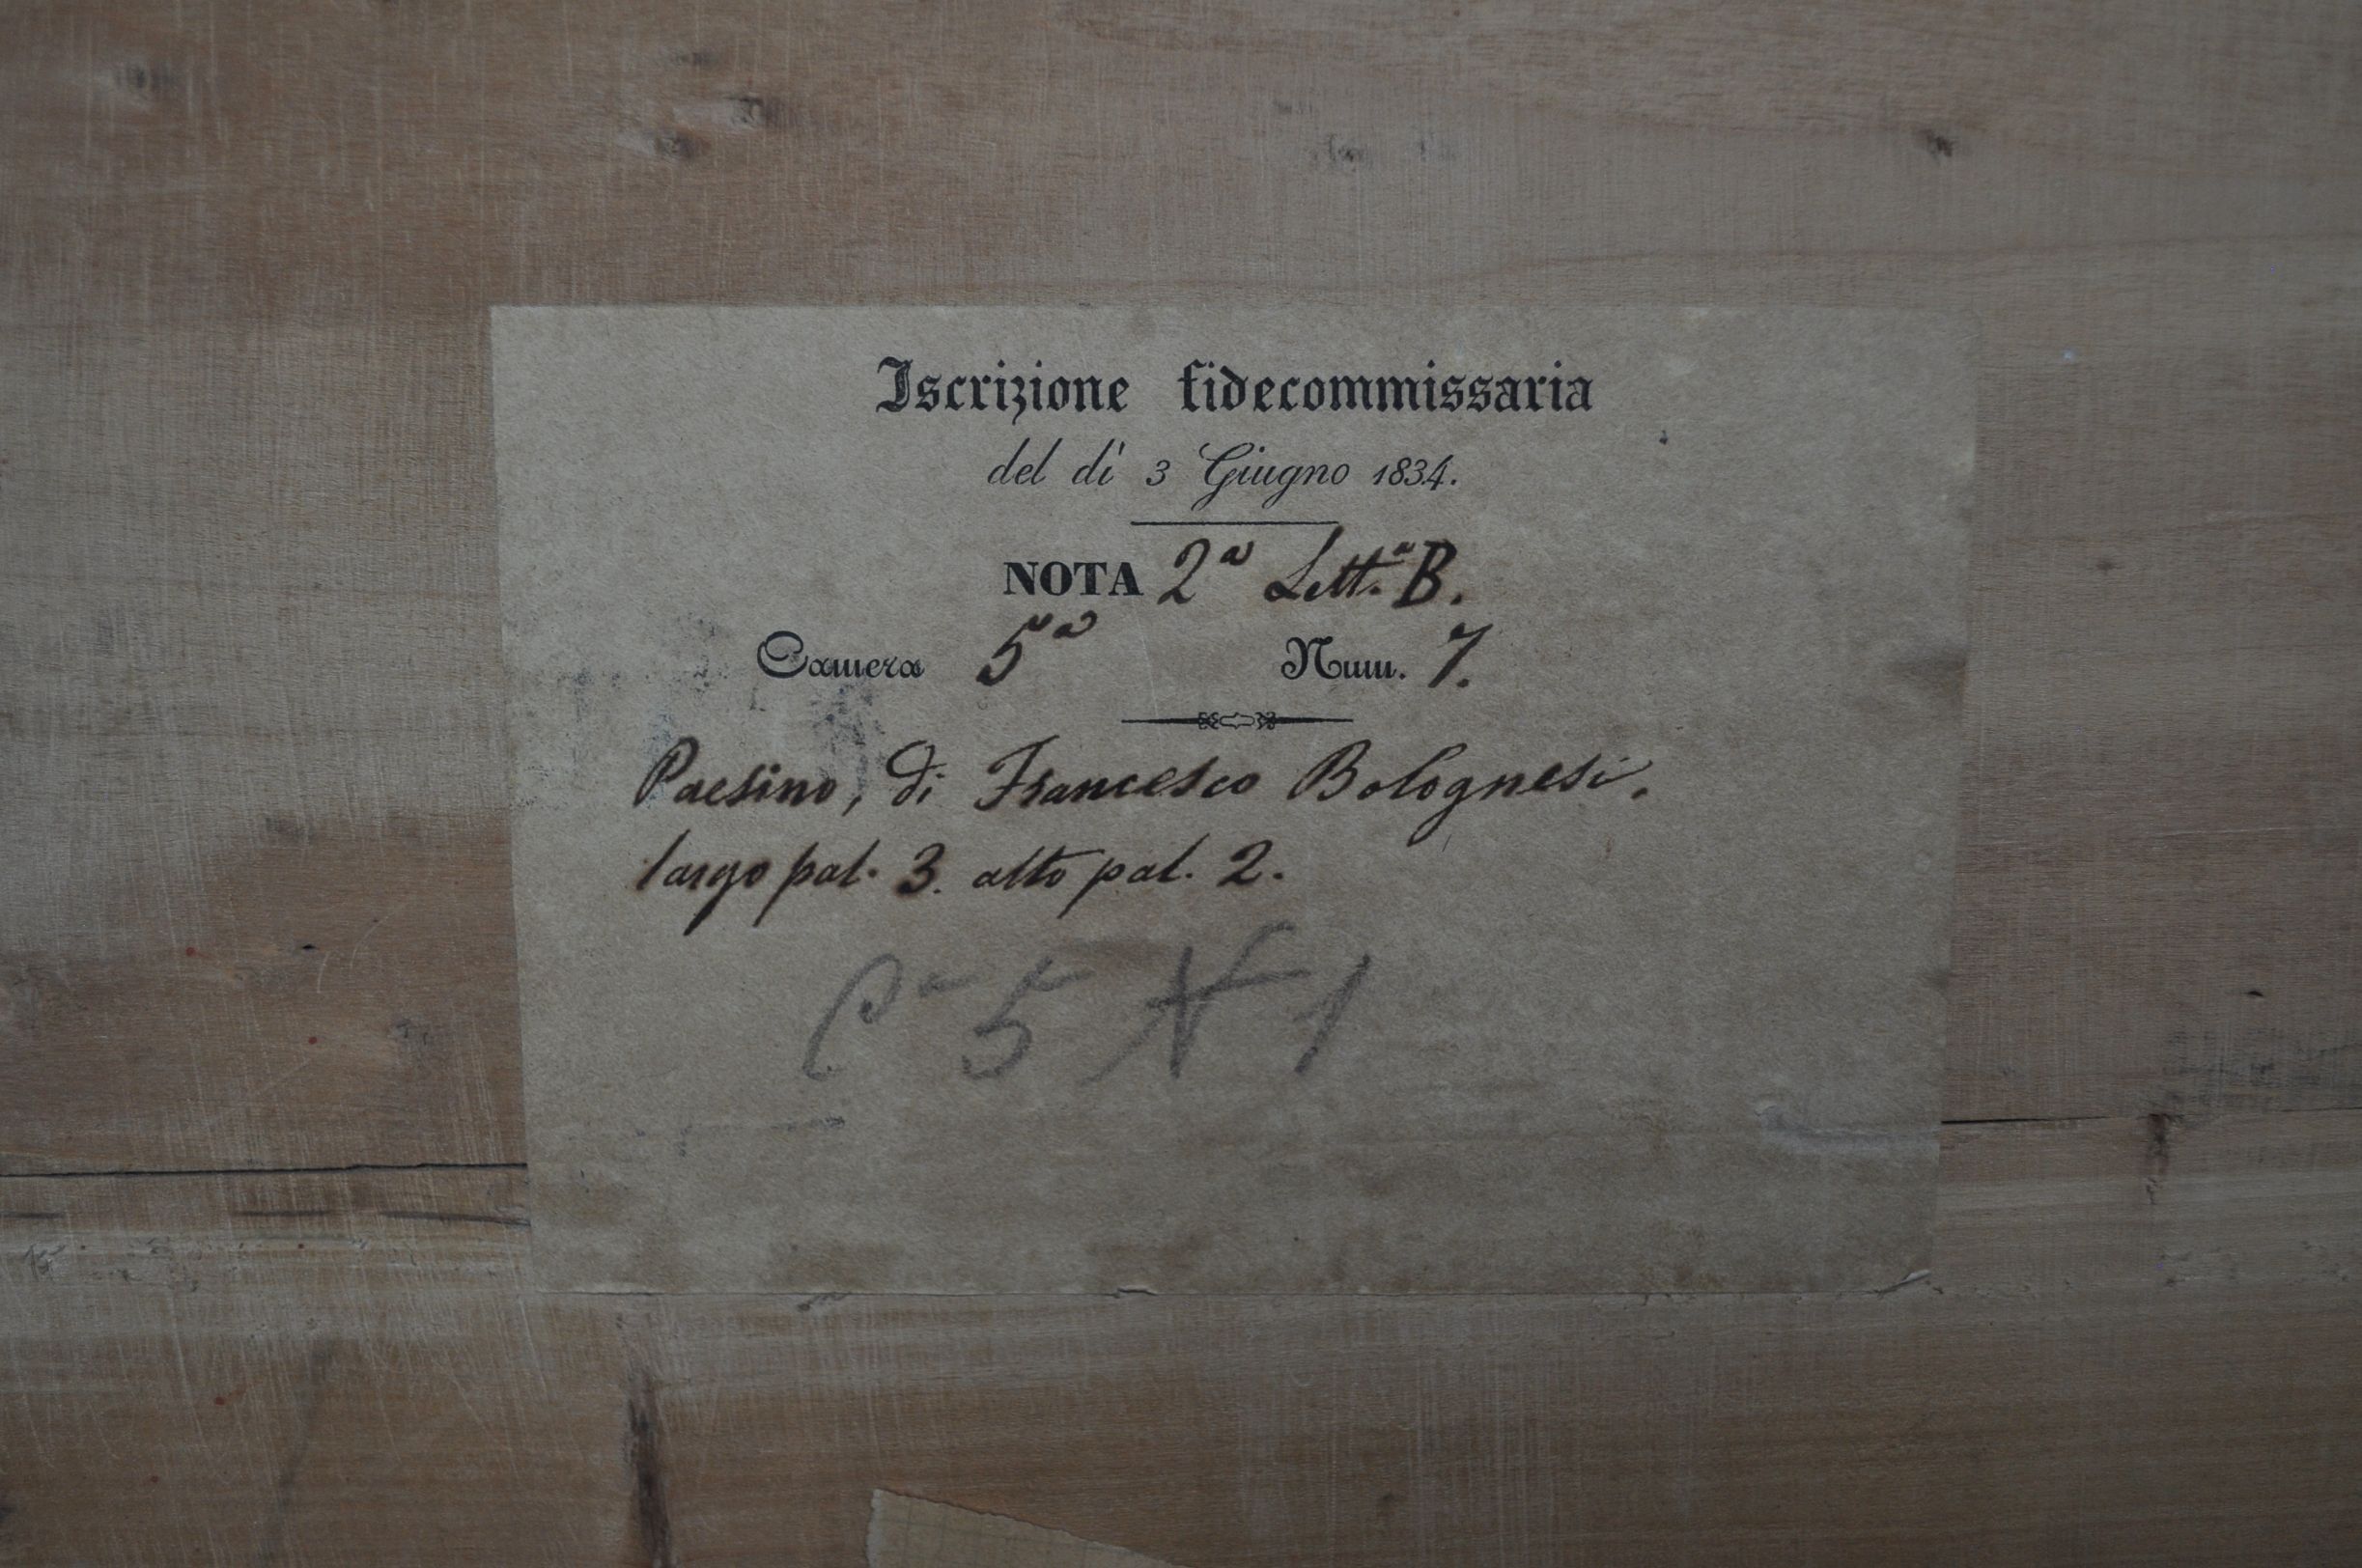 Iscrizione fidecommissaria
del dì 3 Giugno 1834.
NOTA 2ª Lett.ª B.
Camera 5ª Num. 7.
Paesino, di Francesco Bolognesi.
largo pal. 3. alto pal. 2.
Cª 5 N 1